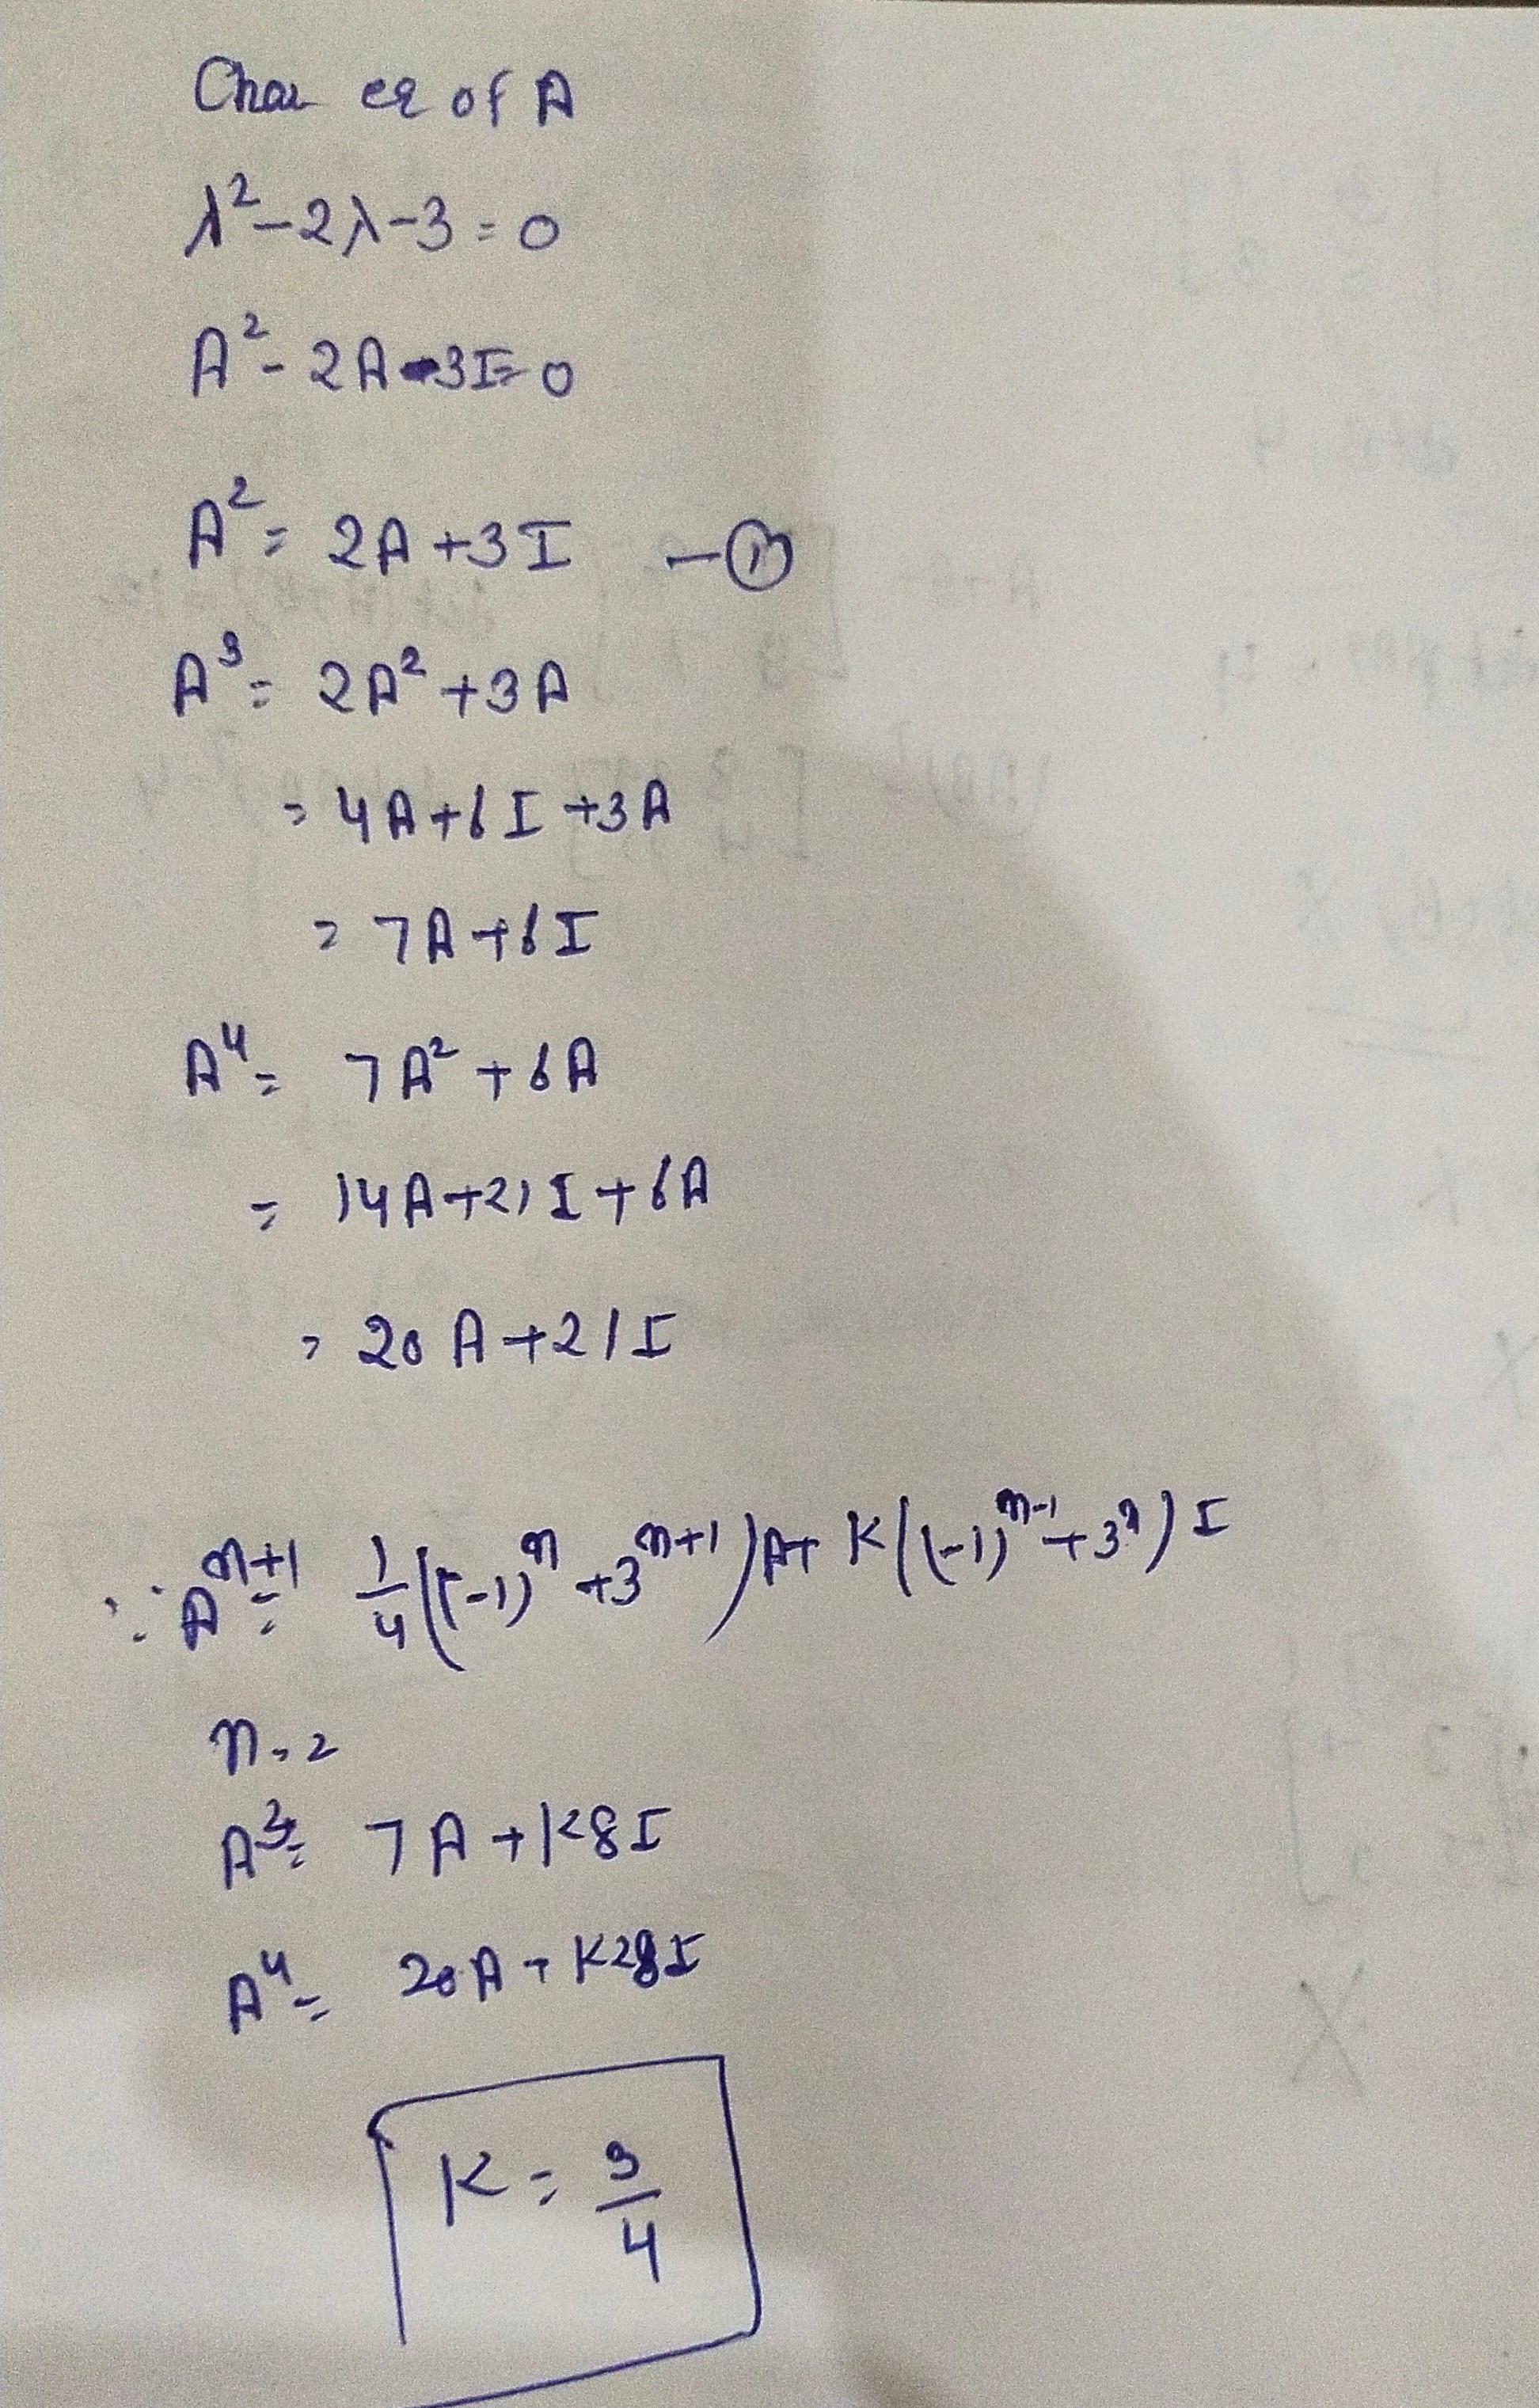 Char eq of A
λ²-2λ-3=0
A²-2A-3I=0
A²= 2A+3I -①
A³= 2A²+3A
= 4A+6I+3A
= 7A+6I
A⁴= 7A²+6A
= 14A+21I+6A
= 20A+21I
∴ Aⁿ⁺¹= 1/4((-1)ⁿ+3ⁿ⁺¹)A+K((-1)ⁿ⁻¹+3ⁿ)I
n=2
A³= 7A+K8I
A⁴= 20A+K28I
K= 3/4